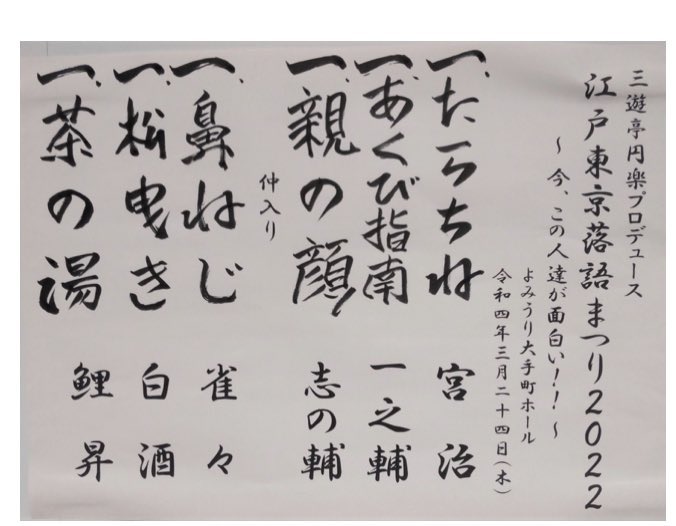 三遊亭円楽プロデュース
江戸東京落語まつり2022
～今、この人達が面白い!!～
よみうり大手町ホール
令和四年三月二十四日(木)
一、たらちね 宮治
一、あくび指南 一之輔
一、親の顔 志の輔
仲入り
一、鼻ねじ 雀々
一、松曳き 白酒
一、茶の湯 鯉昇